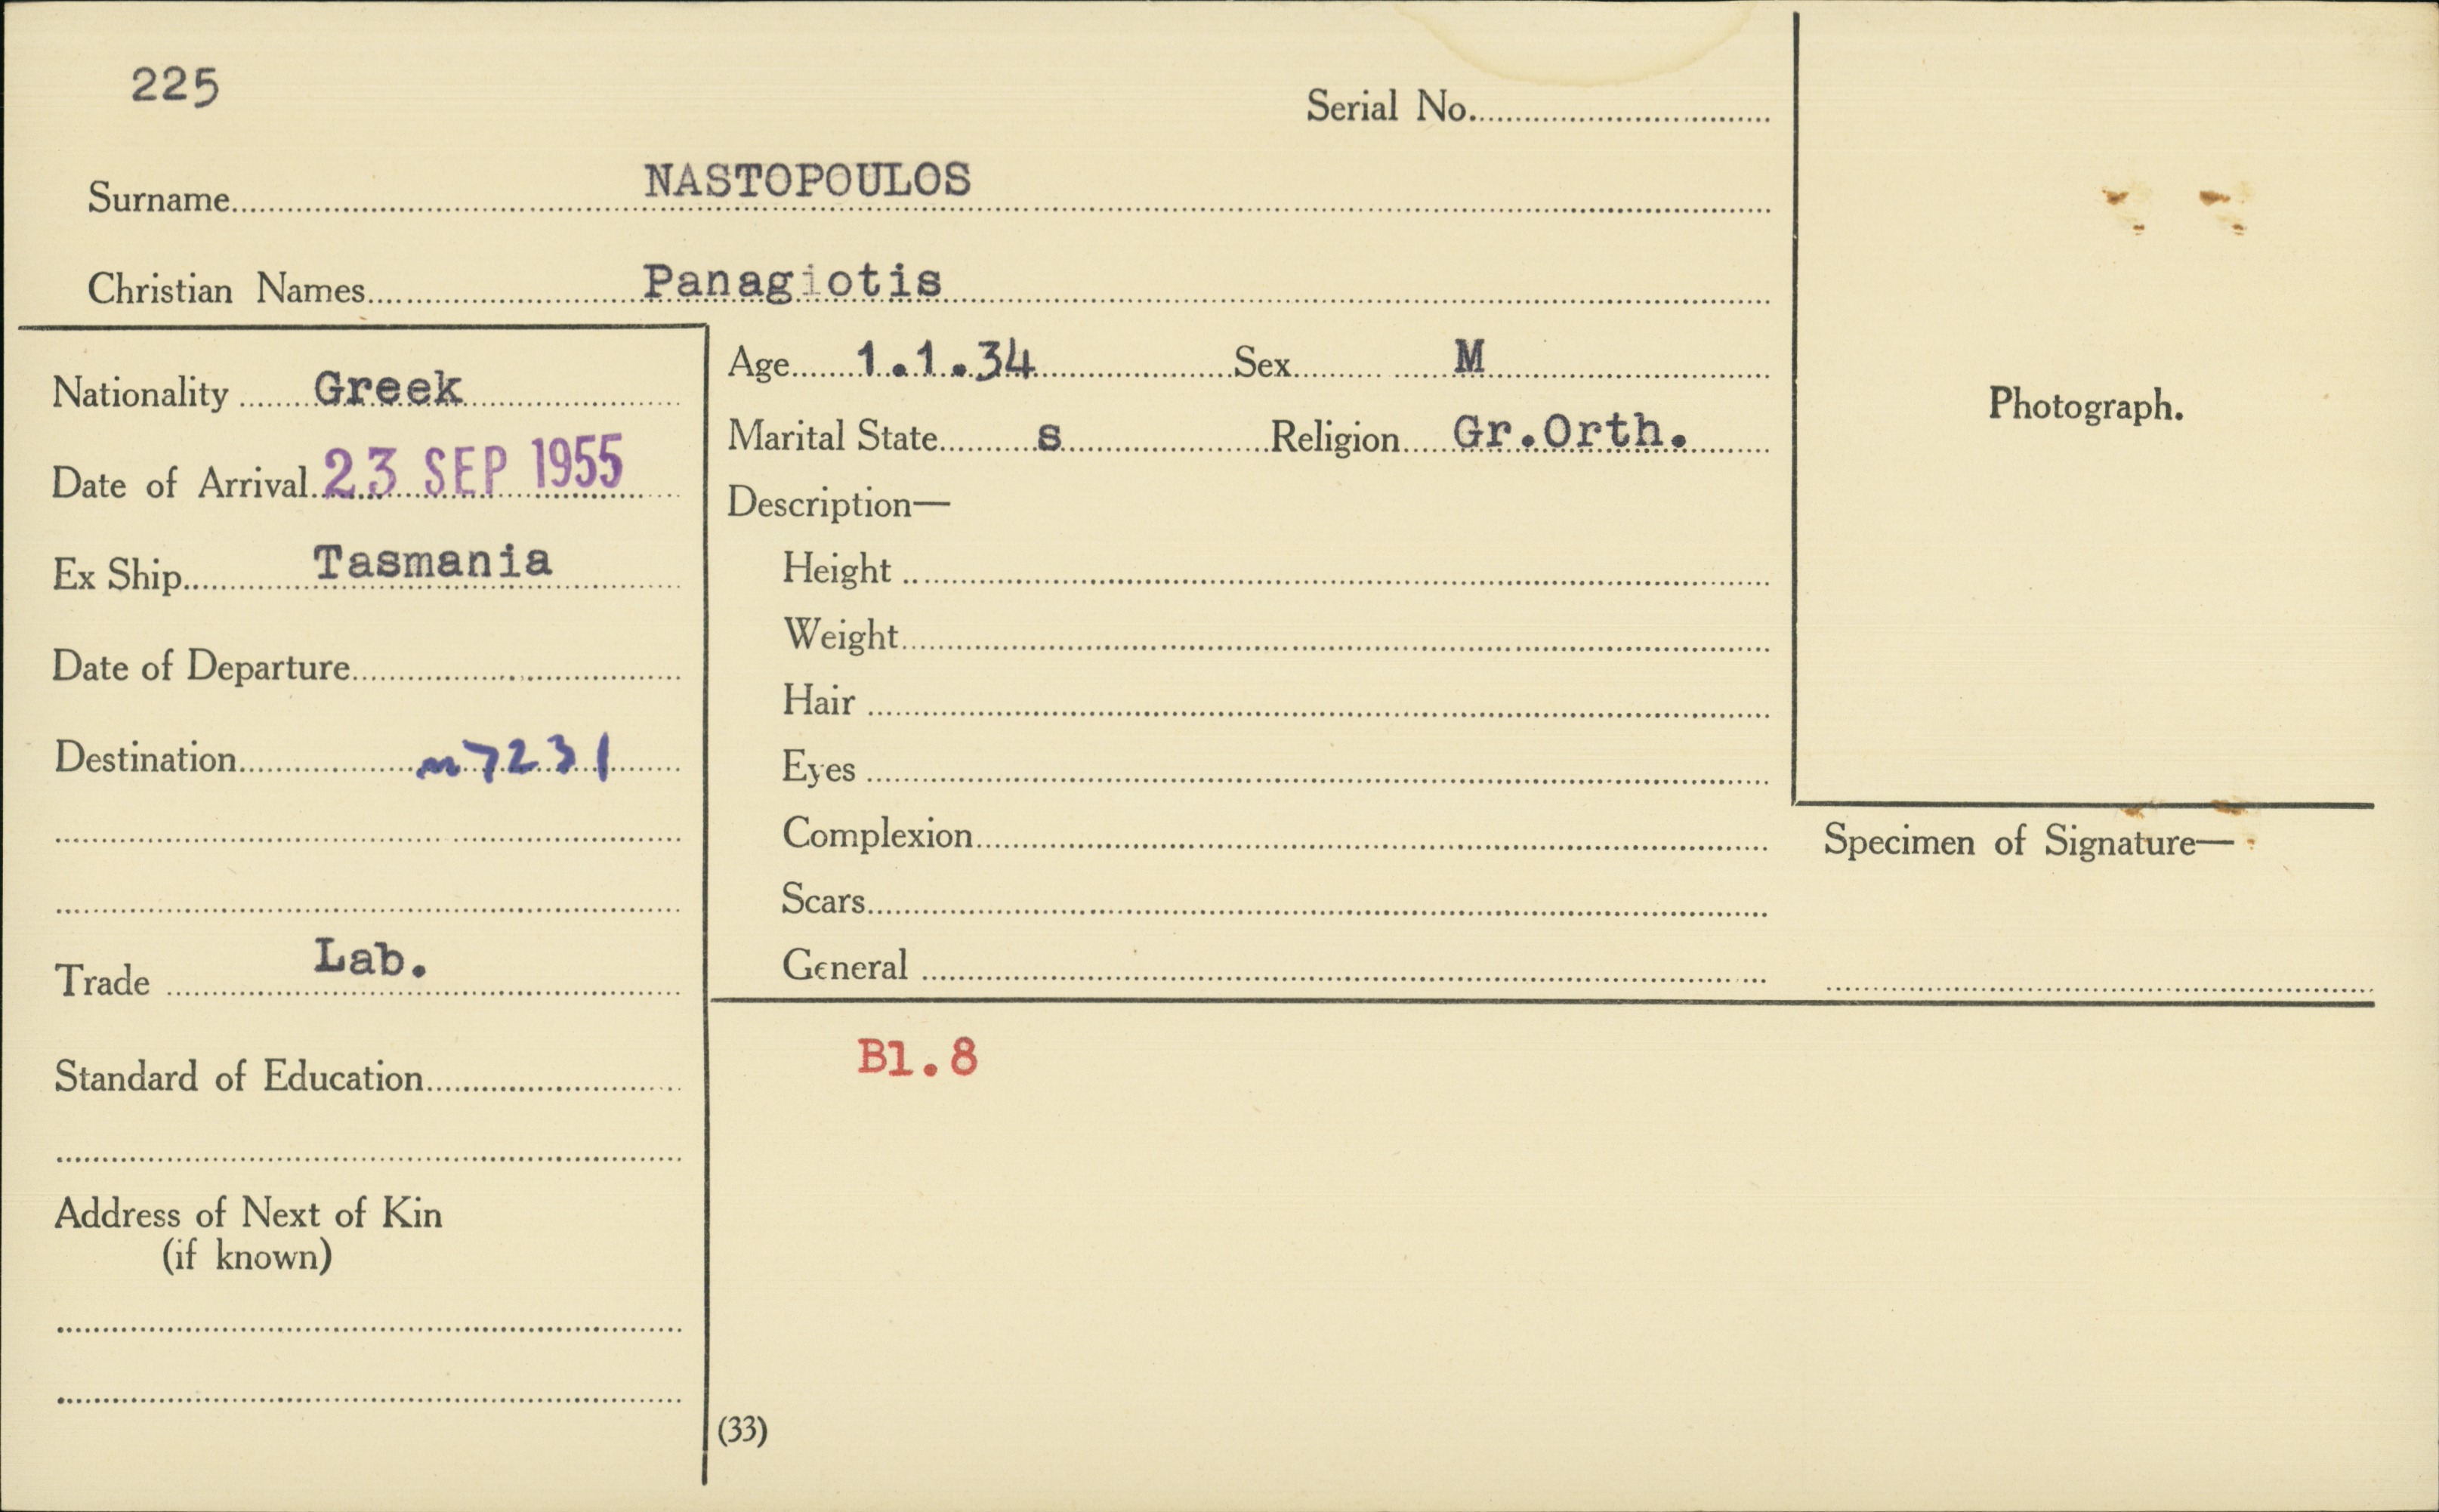 225
Serial No.
Surname NASTOPOULOS
Christian Names Panagiotis
Nationality Greek
Date of Arrival 23 SEP 1955
Ex Ship Tasmania
Date of Departure
Destination n7231
Trade Lab.
Standard of Education
Address of Next of Kin
(if known)
Age 1.1.34 Sex M
Marital State s Religion Gr.Orth.
Description—
Height
Weight
Hair
Eyes
Complexion
Scars
General
Photograph.
Specimen of Signature—
Bl.8
(33)